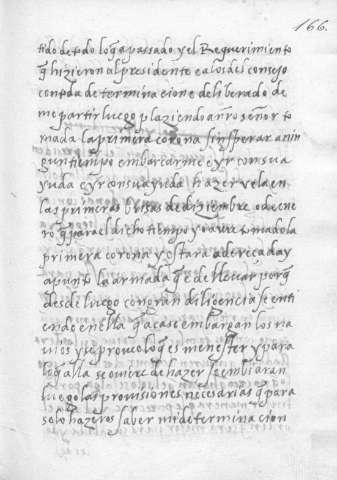 166.
tido de todo lo q̃ a passado y el Requerimiento
q̃ hizieron al presidente e a los del consejo
con toda determinacion e deliberado de
me partir luego plaziendo a nr̃o señor to
mada la primera corona sin esperar a nin
gun tiempo embarcarme e yr con su a
yuda e yr con su ayuda hazer vela en
las primeras brisas de diziembre o de ene
ro q̃ para el dicho tiempo yo avre tomado la
primera corona y estara adereçada y
a punto la armada q̃ e de llevar porq̃
desde luego con gran diligencia se enti
ende en ella q̃ aca se embargan los na
vios y se provee lo q̃ es menester y para
lo q̃ alla se oviere de hazer se embiaran
luego las provisiones necesarias q̃ para
solo hazeros saber mi determinacion